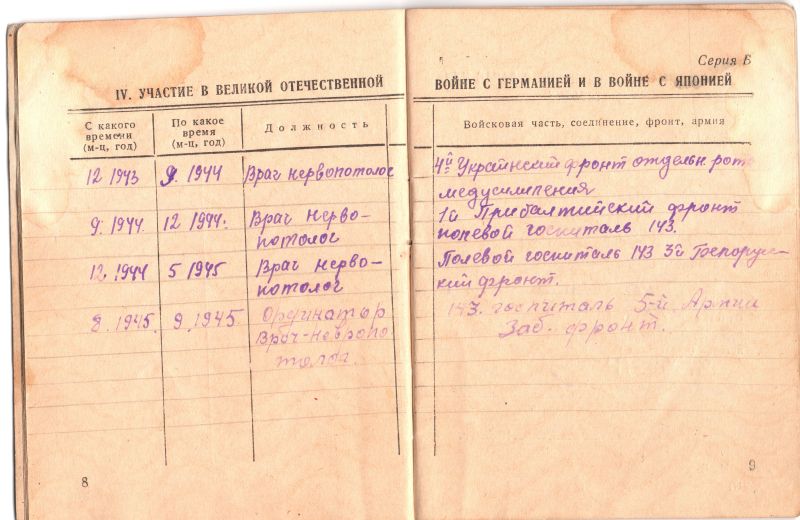 Серия Б
IV. УЧАСТИЕ В ВЕЛИКОЙ ОТЕЧЕСТВЕННОЙ ВОЙНЕ С ГЕРМАНИЕЙ И В ВОЙНЕ С ЯПОНИЕЙ
С какого
времени
(м-ц, год)
По какое
время
(м-ц, год)
Должность
Войсковая часть, соединение, фронт, армия
12 1943 9. 1944 Врач нервопотолог
4й Украинский фронт отдельн. рота
медусиления
9. 1944. 12 1944. Врач нерво-
потолог
1й Прибалтийский фронт
полевой госпиталь 143.
12. 1944 5 1945 Врач нерво-
потолог
Полевой госпиталь 143 3й
кий фронт.
8. 1945. 9. 1945. Ординатор
Врач-невропо
толог.
143. госпиталь 5-й. Армии
Заб. фронт.
8
9